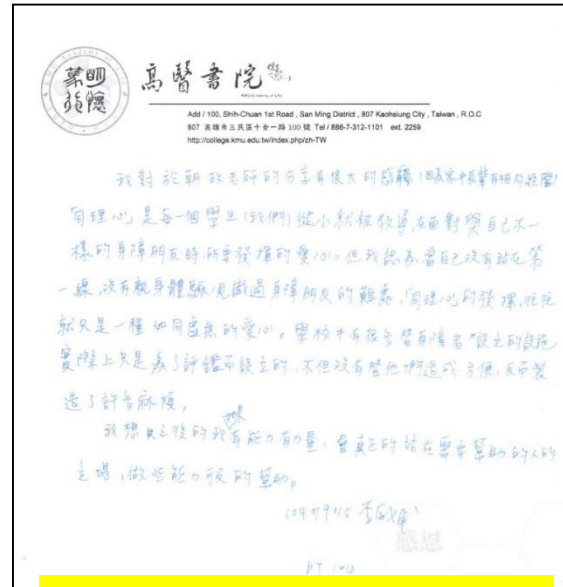 高醫書院
Add / 100, Shih-Chuan 1st Road , San Ming District , 807 Kaohsiung City , Taiwan , R.O.C
807 高雄市三民區十全一路 100 號 Tel / 886-7-312-1101 ext. 2259
http://college.kmu.edu.tw/index.php/zh-TW
我對於朝政老師的分享有很大的感觸
「同理心」是每一個學生(我們)從小就被教導,在面對與自己不一
樣的身障朋友時,所要發揮的愛心。但我認為,當自己沒有站在第
一線,沒有親身體驗、見識過身障朋友的難處,「同理心」的發揮,往往
就只是一種如同虛無的愛心。學校中有很多替身障者"設立的設施
實際上只是為了評鑑而設立的,不但沒有替他們造成方便,反而製
造了許多麻煩。
我想之後的我如果有能力有力量,會真正的站在需要幫助的人的
立場,做些能力所及的幫助。
感恩
PT 104